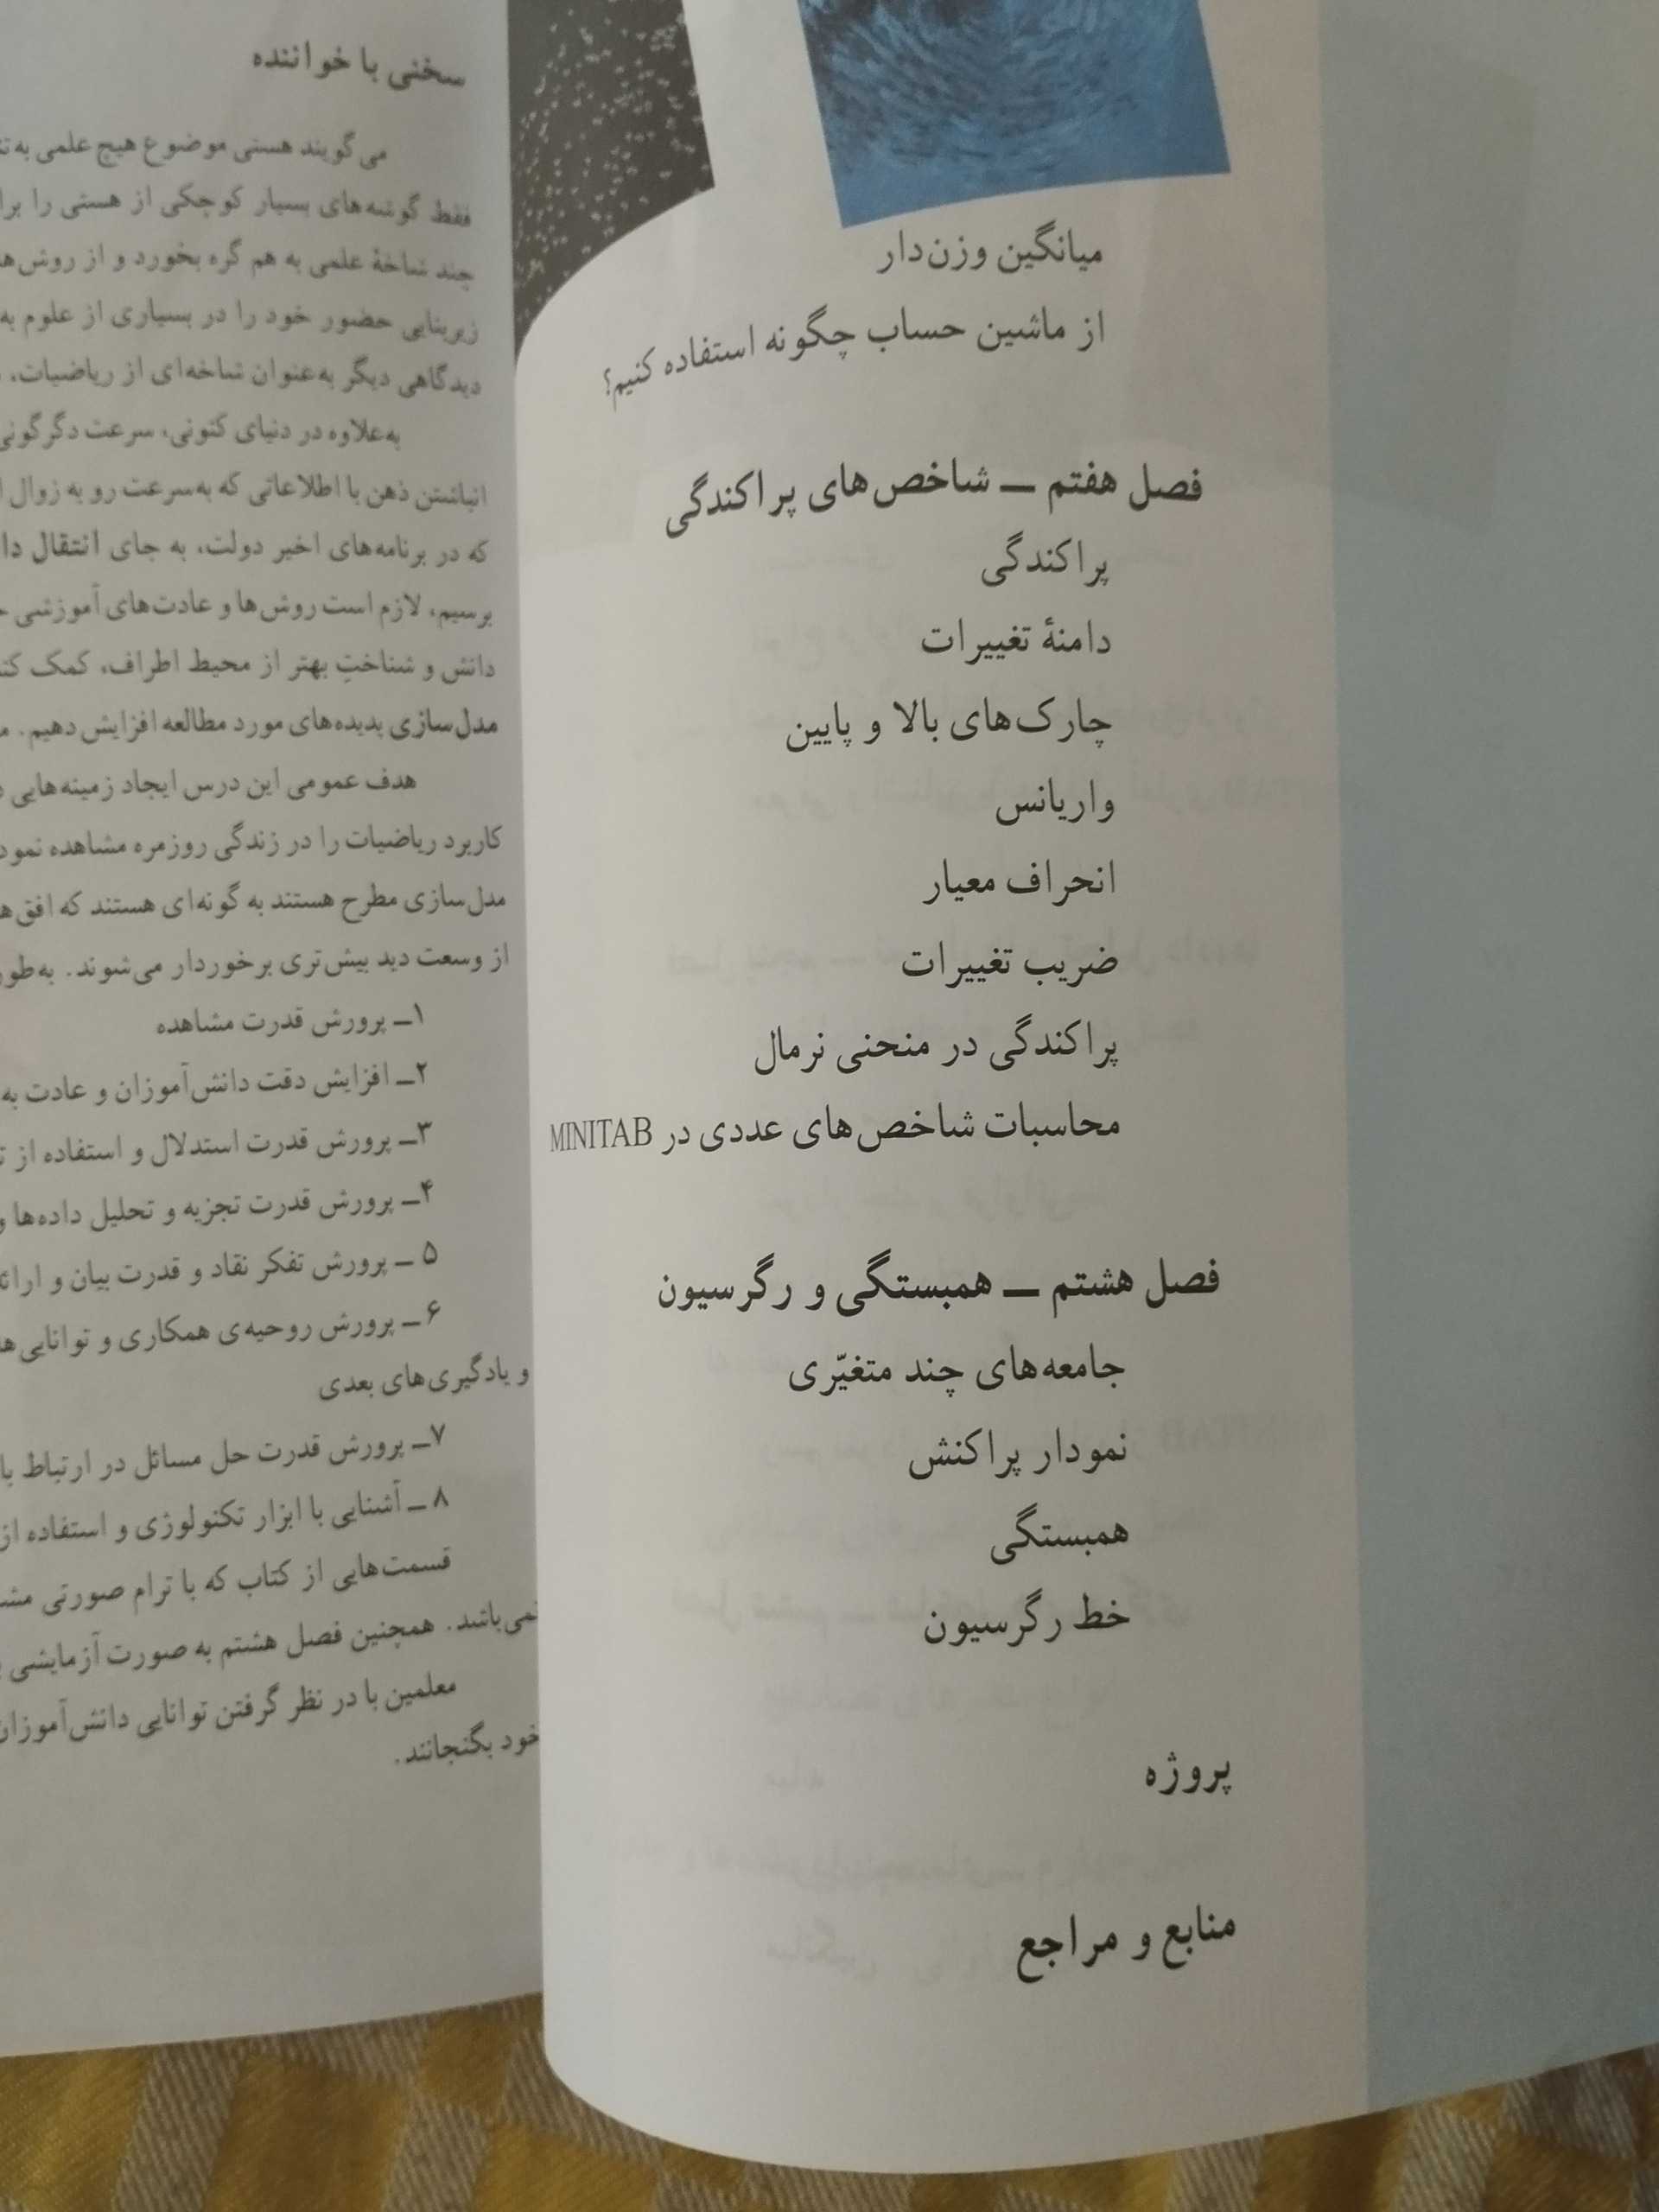 میانگین وزن‌دار
از ماشین حساب چگونه استفاده کنیم؟
فصل هفتم ــ شاخص‌های پراکندگی
پراکندگی
دامنهٔ تغییرات
چارک‌های بالا و پایین
واریانس
انحراف معیار
ضریب تغییرات
پراکندگی در منحنی نرمال
محاسبات شاخص‌های عددی در MINITAB
فصل هشتم ــ همبستگی و رگرسیون
جامعه‌های چند متغیّری
نمودار پراکنش
همبستگی
خط رگرسیون
پروژه
منابع و مراجع
سخنی با خواننده
می‌گویند هستی موضوع هیچ علمی به
فقط گوشه‌های بسیار کوچکی از هستی را
چند شاخهٔ علمی به هم گره بخورد و از
زیربنایی حضور خود را در بسیاری از علوم به
دیدگاهی دیگر به‌عنوان شاخه‌ای از ریاضیات،
به‌علاوه در دنیای کنونی، سرعت
انباشتن ذهن با اطلاعاتی که به‌سرعت رو به زوال
که در برنامه‌های اخیر دولت، به جای انتقال
برسیم، لازم است روش‌ها و عادت‌های آموزشی
دانش و شناختِ بهتر از محیط اطراف، کمک
مدل‌سازی پدیده‌های مورد مطالعه افزایش دهیم.
هدف عمومی این درس ایجاد زمینه‌هایی
کاربرد ریاضیات را در زندگی روزمره مشاهده
مدل‌سازی مطرح هستند به گونه‌ای هستند که
از وسعت دید بیش‌تری برخوردار می‌شوند.
۱ــ پرورش قدرت مشاهده
۲ــ افزایش دقت دانش‌آموزان و عادت به
۳ــ پرورش قدرت استدلال و استفاده از
۴ــ پرورش قدرت تجزیه و تحلیل داده‌ها
۵ ــ پرورش تفکر نقاد و قدرت بیان و
۶ــ پرورش روحیه‌ی همکاری و
و یادگیری‌های بعدی
۷ــ پرورش قدرت حل مسائل در ارتباط با
۸ ــ آشنایی با ابزار تکنولوژی و استفاده از
قسمت‌هایی از کتاب که با ترام صورتی
نمی‌باشد. همچنین فصل هشتم به صورت آزمایشی
معلمین با در نظر گرفتن توانایی دانش‌آموزان
خود بگنجانند.